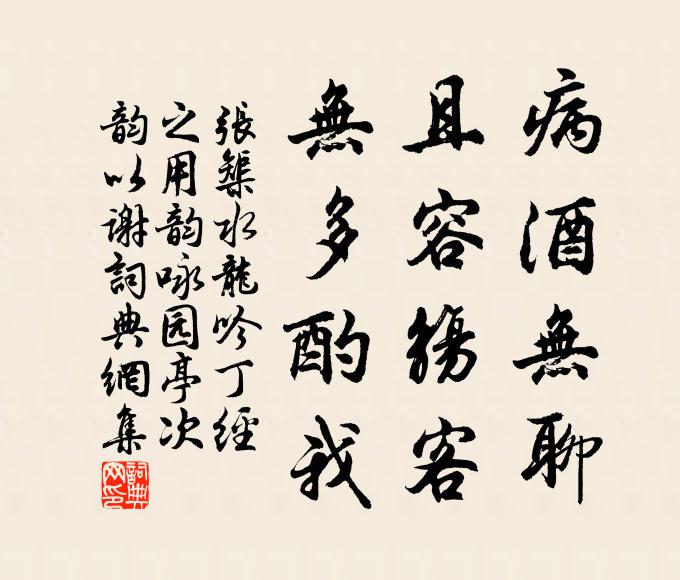 病酒無聊
且容觴客
無多酌我
張榘水龍吟丁經
之用韵咏园亭次
韵以谢詞典網集
詞典网印